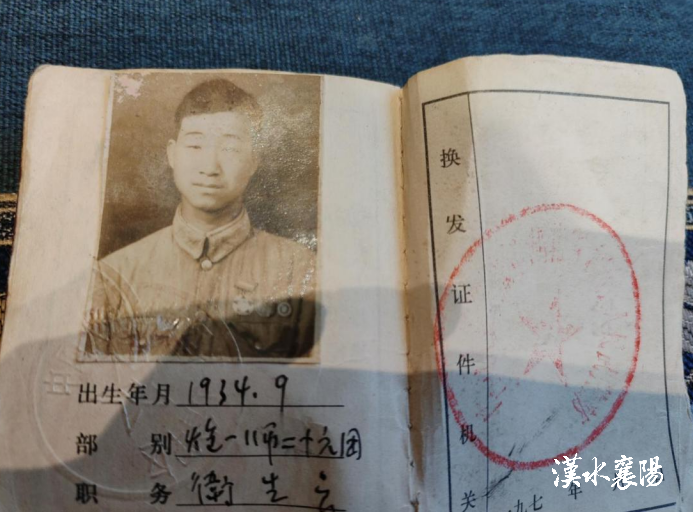 出生年月 1934.9
部别 炮一师二十六团
职务 衛生员
换发证件机关
一九七 年
漢水襄陽